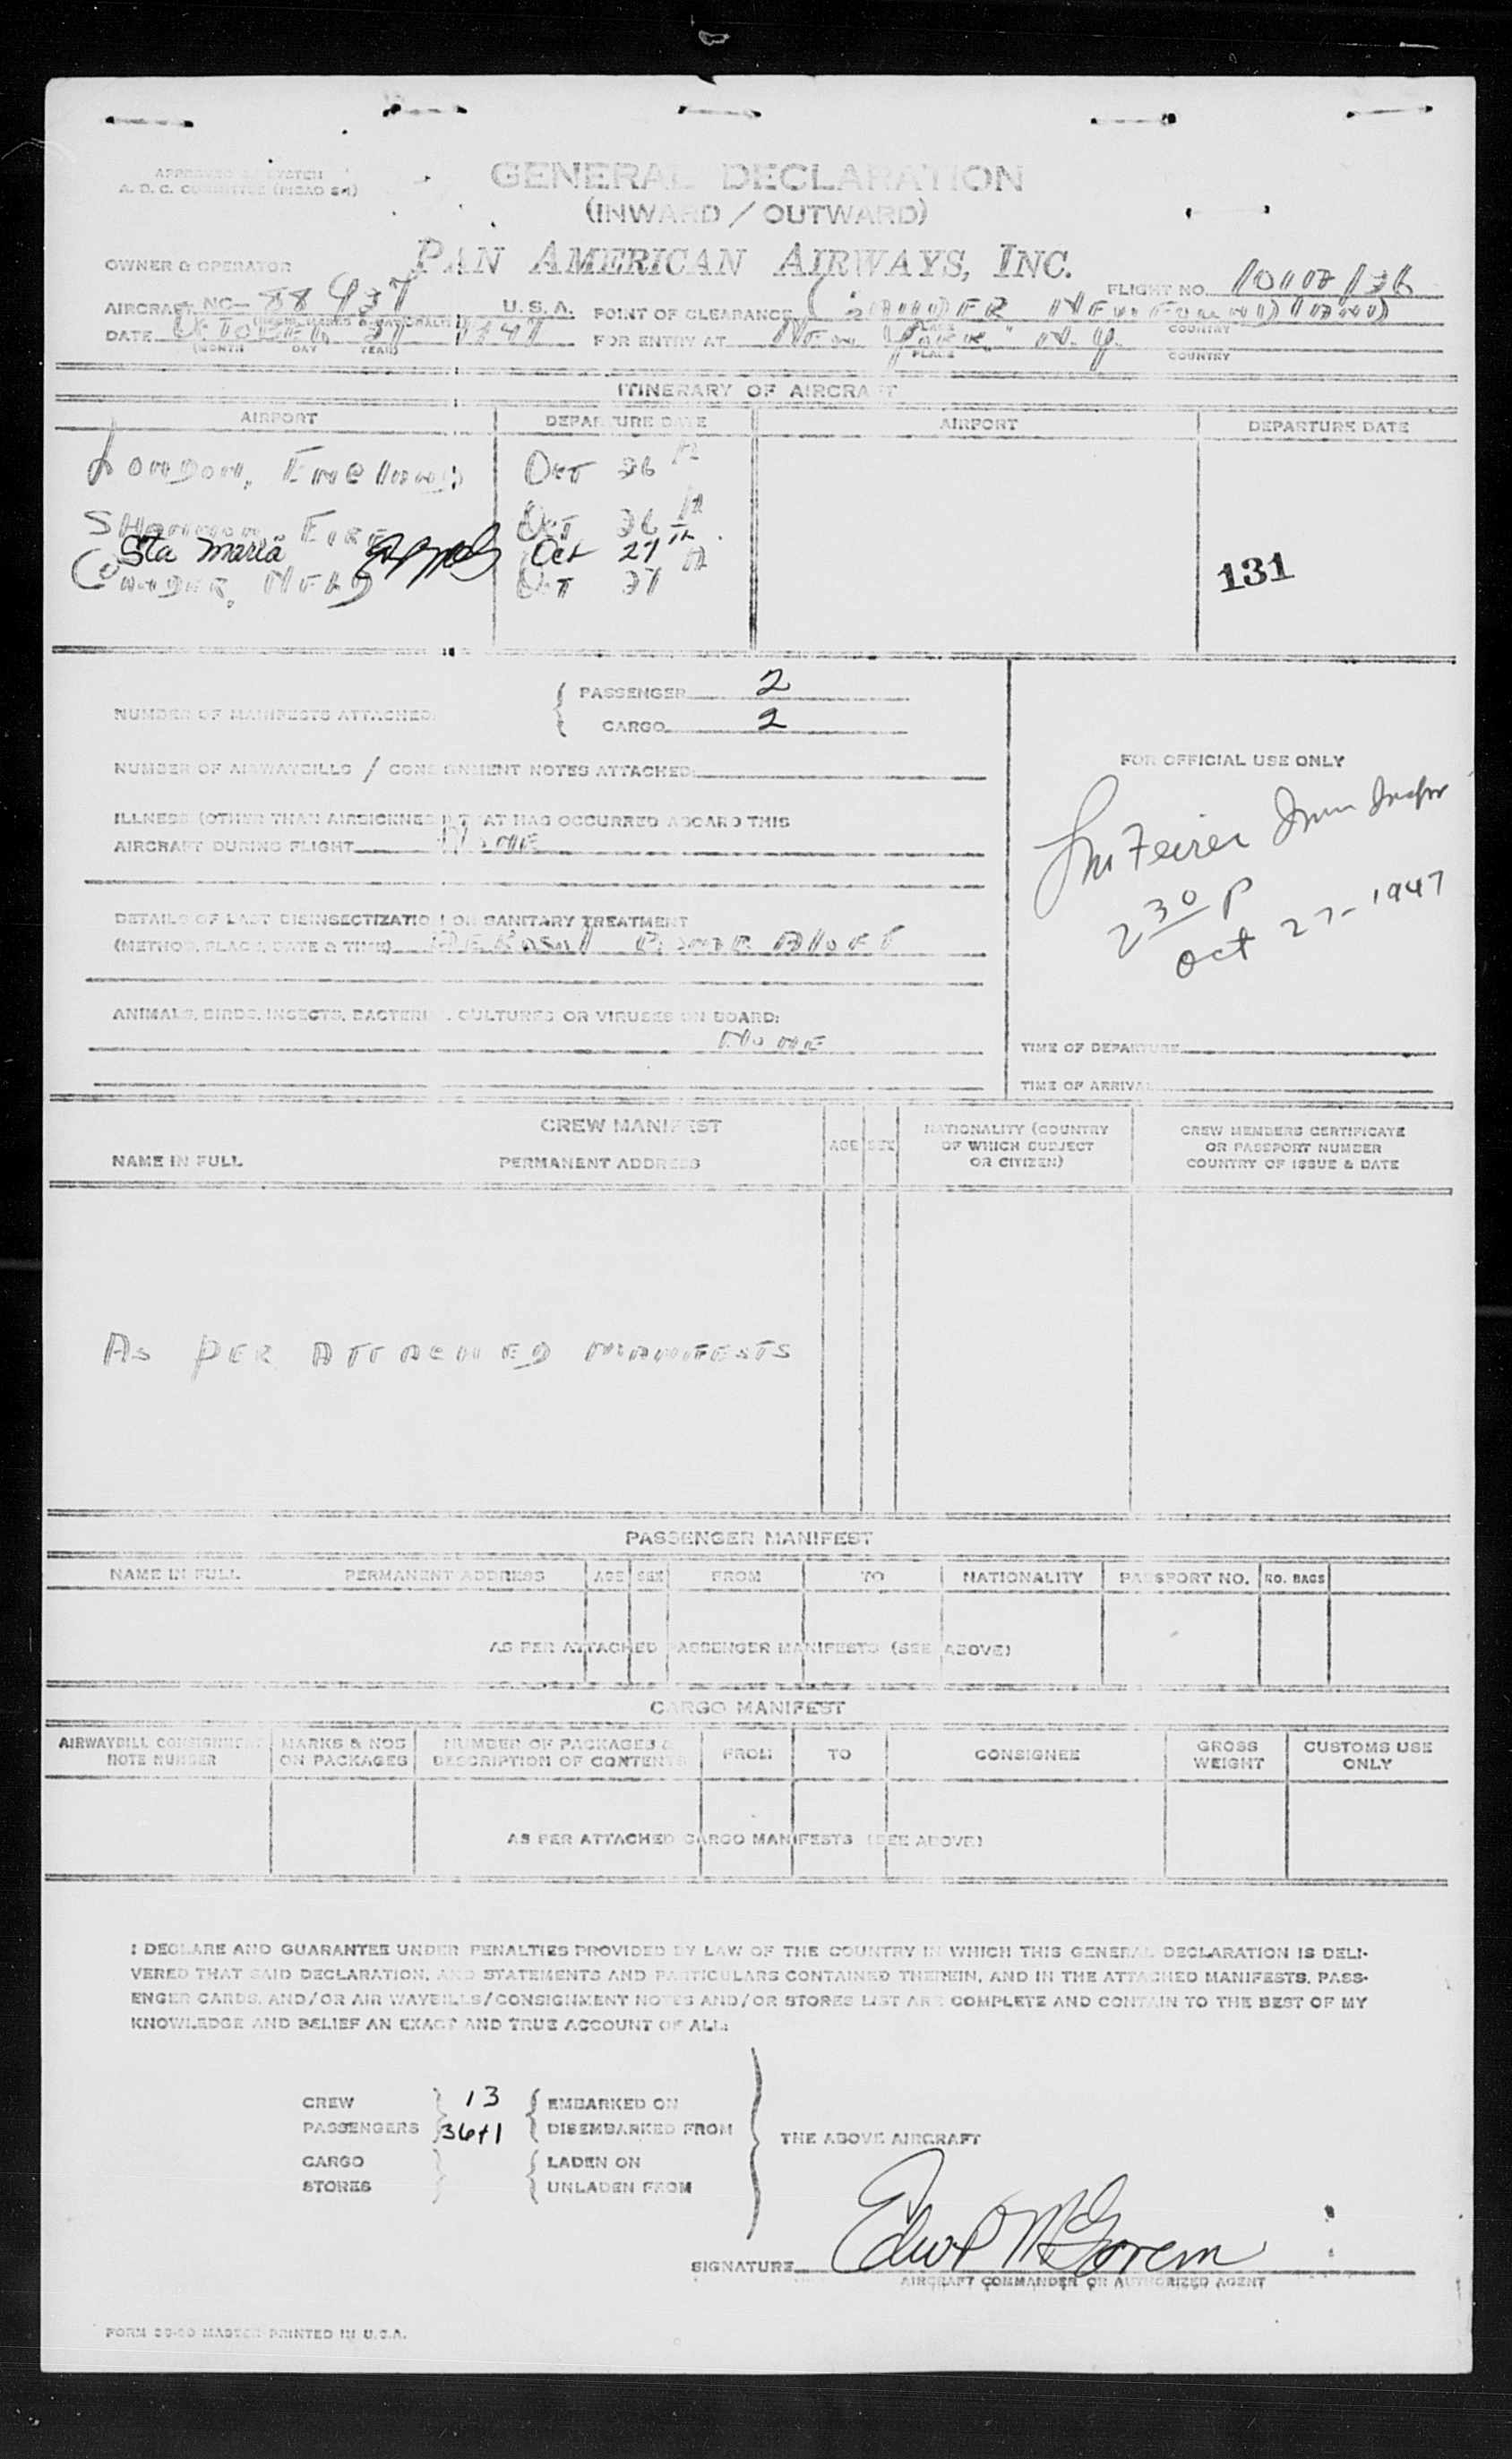 APPROVED SYSTEM
A. D. C. COMMITTEE (PICAO S-1)
GENERAL DECLARATION
(INWARD / OUTWARD)
OWNER & OPERATOR
PAN AMERICAN AIRWAYS, INC.
FLIGHT NO.
AIRCRAFT NC- 88937 U. S. A. POINT OF CLEARANCE GANDER NEWFOUNDLAND
PLACE COUNTRY
DATE OCTOBER 27 1947 FOR ENTRY AT NEW YORK, N. Y.
(MONTH DAY YEAR) PLACE COUNTRY
ITINERARY OF AIRCRAFT
AIRPORT DEPARTURE DATE AIRPORT DEPARTURE DATE
LONDON, ENGLAND OCT 26 th
SHANNON EIRE OCT 26 th
Sta Maria Oct 27 th
GANDER, NFLD OCT 27 th
131
NUMBER OF MANIFESTS ATTACHED: PASSENGER 2
CARGO 2
NUMBER OF AIRWAYBILLS / CONSIGNMENT NOTES ATTACHED:
FOR OFFICIAL USE ONLY
ILLNESS (OTHER THAN AIRSICKNESS) THAT HAS OCCURRED ABOARD THIS
AIRCRAFT DURING FLIGHT NONE
Imm Inspr
2 30 P
Oct 27 - 1947
DETAILS OF LAST DISINSECTIZATION OR SANITARY TREATMENT
(METHOD, PLACE, DATE & TIME) AEROSOL BOMB ALOFT
ANIMALS, BIRDS, INSECTS, BACTERIAL CULTURES OR VIRUSES ON BOARD:
NONE
TIME OF DEPARTURE
TIME OF ARRIVAL
CREW MANIFEST
NAME IN FULL PERMANENT ADDRESS AGE SEX NATIONALITY (COUNTRY OF WHICH SUBJECT OR CITIZEN) CREW MEMBERS CERTIFICATE OR PASSPORT NUMBER COUNTRY OF ISSUE & DATE
AS PER ATTACHED MANIFESTS
PASSENGER MANIFEST
NAME IN FULL PERMANENT ADDRESS AGE SEX FROM TO NATIONALITY PASSPORT NO. NO. BAGS
AS PER ATTACHED PASSENGER MANIFESTS (SEE ABOVE)
CARGO MANIFEST
AIRWAYBILL CONSIGNMENT NOTE NUMBER MARKS & NOS ON PACKAGES NUMBER OF PACKAGES & DESCRIPTION OF CONTENTS FROM TO CONSIGNEE GROSS WEIGHT CUSTOMS USE ONLY
AS PER ATTACHED CARGO MANIFESTS (SEE ABOVE)
I DECLARE AND GUARANTEE UNDER PENALTIES PROVIDED BY LAW OF THE COUNTRY IN WHICH THIS GENERAL DECLARATION IS DELI-
VERED THAT SAID DECLARATION, AND STATEMENTS AND PARTICULARS CONTAINED THEREIN, AND IN THE ATTACHED MANIFESTS, PASS-
ENGER CARDS, AND/OR AIR WAYBILLS/CONSIGNMENT NOTES AND/OR STORES LIST ARE COMPLETE AND CONTAIN TO THE BEST OF MY
KNOWLEDGE AND BELIEF AN EXACT AND TRUE ACCOUNT OF ALL:
CREW 13 EMBARKED ON
PASSENGERS 36+1 DISEMBARKED FROM
THE ABOVE AIRCRAFT
CARGO LADEN ON
STORES UNLADEN FROM
SIGNATURE
AIRCRAFT COMMANDER OR AUTHORIZED AGENT
PRINTED IN U.S.A.